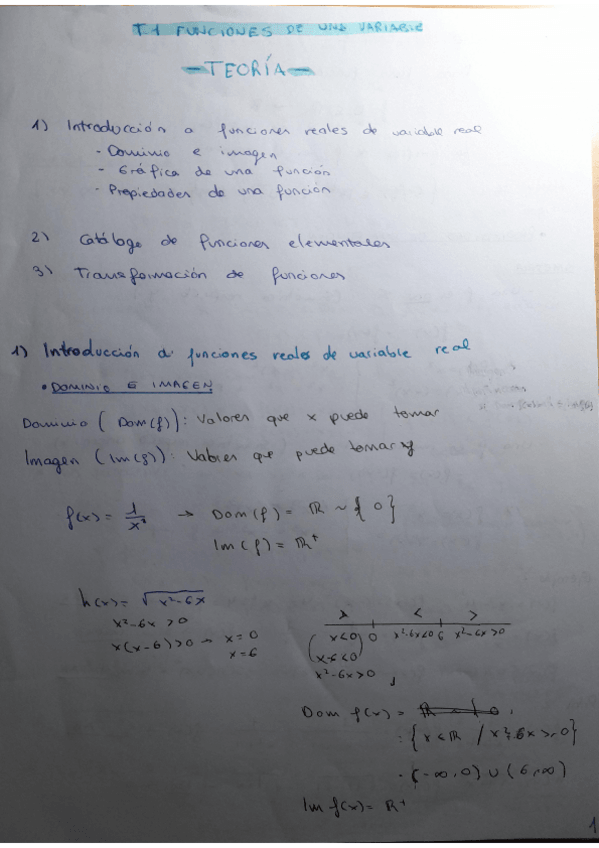 T.1 FUNCIONES DE UNA VARIABLE
- TEORÍA -
1) Introducción a funciones reales de variable real
- Dominio e imagen
- Gráfica de una función
- Propiedades de una función
2) Catálogo de funciones elementales
3) Transformación de funciones
1) Introducción a funciones reales de variable real
• DOMINIO E IMAGEN
Dominio ( Dom(f)): Valores que x puede tomar
Imagen (Im(f)): Valores que puede tomar y
f(x) = 1/x² → Dom(f) = ℝ ~ { 0 }
Im(f) = ℝ⁺
h(x) = √x²-6x
x²-6x > 0
x(x-6) > 0 → x = 0
x = 6
> < >
x<0 0 x²-6x<0 6 x²-6x>0
(x-6<0)
x²-6x>0
Dom f(x) =
: {x ∈ ℝ / x²-6x >, 0}
. (-∞, 0) ∪ (6, ∞)
Im f(x) = ℝ⁺
1